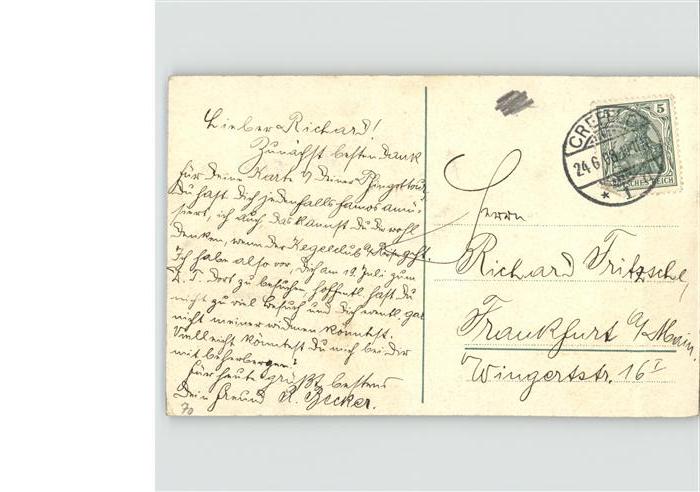 Lieber Richard!
Zunächst besten Dank
für Deine Karte v/ Deiner
Du hast Dich jedenfalls famos amü-
siert, ich auch, das kannst Du Dir wohl
denken, wenn der Kegelclub
Ich habe also vor, Dich am 19. Juli zum
D. T. dort zu besuchen, hoffentl. hast Du
nicht zu viel Besuch und Dich
nicht meiner widmen könntest.
Vielleicht könntest Du mich bei der
mit beherbergen?
Für heute grüßt bestens
Dein Freund R. Becker.
70
CREFELD
24.6.
* 1
5
DEUTSCHES REICH
Herrn
Richard Fritzsche,
Frankfurt a/Main,
Wingertstr. 16 I